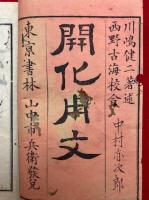 川嶋健二著述
西野古海校合
中村赤次郎
開化用文
東京書林 山中市兵衛發兌